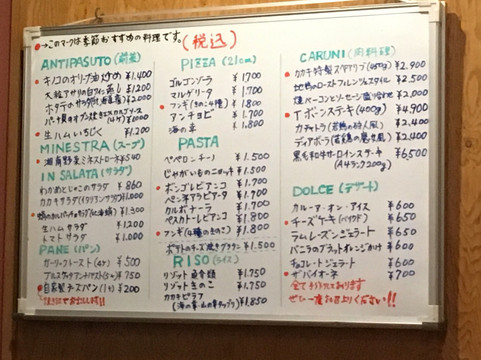 ●→このマークは季節おすすめの料理です。(税込)
ANTIPASUTO (前菜)
キノコのオリーブ油炒め ¥1,400
大粒アサリの白ワイン蒸し ¥1,200
ホタテのサラダ仕立 ¥2,000
¥1,000
生ハムいちじく ¥1,200
MINESTRA (スープ)
湘南野菜ミネストローネ ¥540
IN SALATA (サラダ)
わかめとじゃこのサラダ ¥860
カカキサラダ(イタリアンサラダ) ¥1,000
¥1,300
生ハムサラダ ¥1,200
トマトサラダ ¥1,000
PANE (パン)
ガーリックトースト(4ケ) ¥500
¥750
自家製チーズパン(1ケ) ¥200
PIZZA (21cm)
ゴルゴンゾーラ ¥1700
マルゲリータ ¥1,700
フンギ(きのこ4種) ¥1,800
アンチョビ ¥1,700
海の幸 ¥1,800
PASTA
ペペロンチーノ ¥1.500
じゃがいものニョッキ ¥1,500
ボンゴレビアンコ ¥1.700
ペンネアラビアータ ¥1.700
カルボナーラ ¥1.700
ペスカトーレビアンコ ¥1.800
フンギ(4種のきのこ) ¥1.800
ポテトのチーズ焼きグラタン ¥1.500
RISO (ライス)
リゾット 魚介類 ¥1.750
リゾット きのこ ¥1.750
カカキピラフ
(海の幸・山の幸) ¥1,850
CARUNI (肉料理)
カカキ特製スペアリブ(450g) ¥2,900
地鶏のローストフィレンツェスタイル ¥2,500
燻ベーコンとソーセージ盛り合わせ ¥2,000
Tボーンステーキ(400g) ¥4,900
カチャトラ(若鶏の狩人風) ¥2,400
ディアボーラ(若鶏の悪魔風) ¥2,400
黒毛和牛サーロインステーキ ¥6,500
(A4ランク200g)
DOLCE (デザート)
カルーア・オン・アイス ¥600
チーズケーキ(ベイクド) ¥650
ラムレーズンジェラート ¥650
バニラのブラッドオレンジがけ ¥650
チョコレートジェラート ¥600
ザバイオーネ ¥700
全て手作りしております
ぜひ一度お召上りください!!